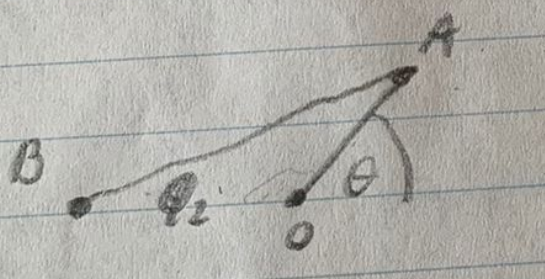 A
B
φ₂ θ
O